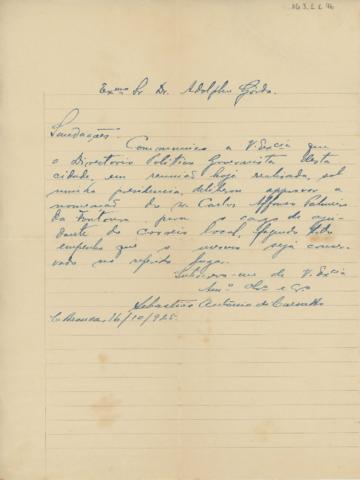 Exmo Sr. Dr. Adolpho Gordo.
Saudações.
Communico a V. Excia que
o Directorio Politico Governista desta
cidade, em reunião hoje realizada, sob
minha presidencia, deliberou approvar a
nomeação do sr. Carlos Affonso Palmeira
da Fontoura para o cargo de aju-
dante do correio local, fazendo todo
empenho que o mesmo seja conser-
vado no referido lugar.
Subscrevo-me de V. Excia
Amo
Sebastião Antonio de Carvalho
C. Branca, 16/10/925.